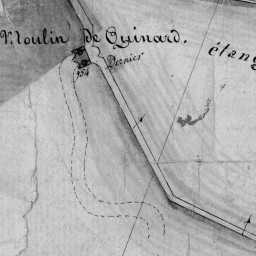 Moulin de Guinard.
étang
Dernier